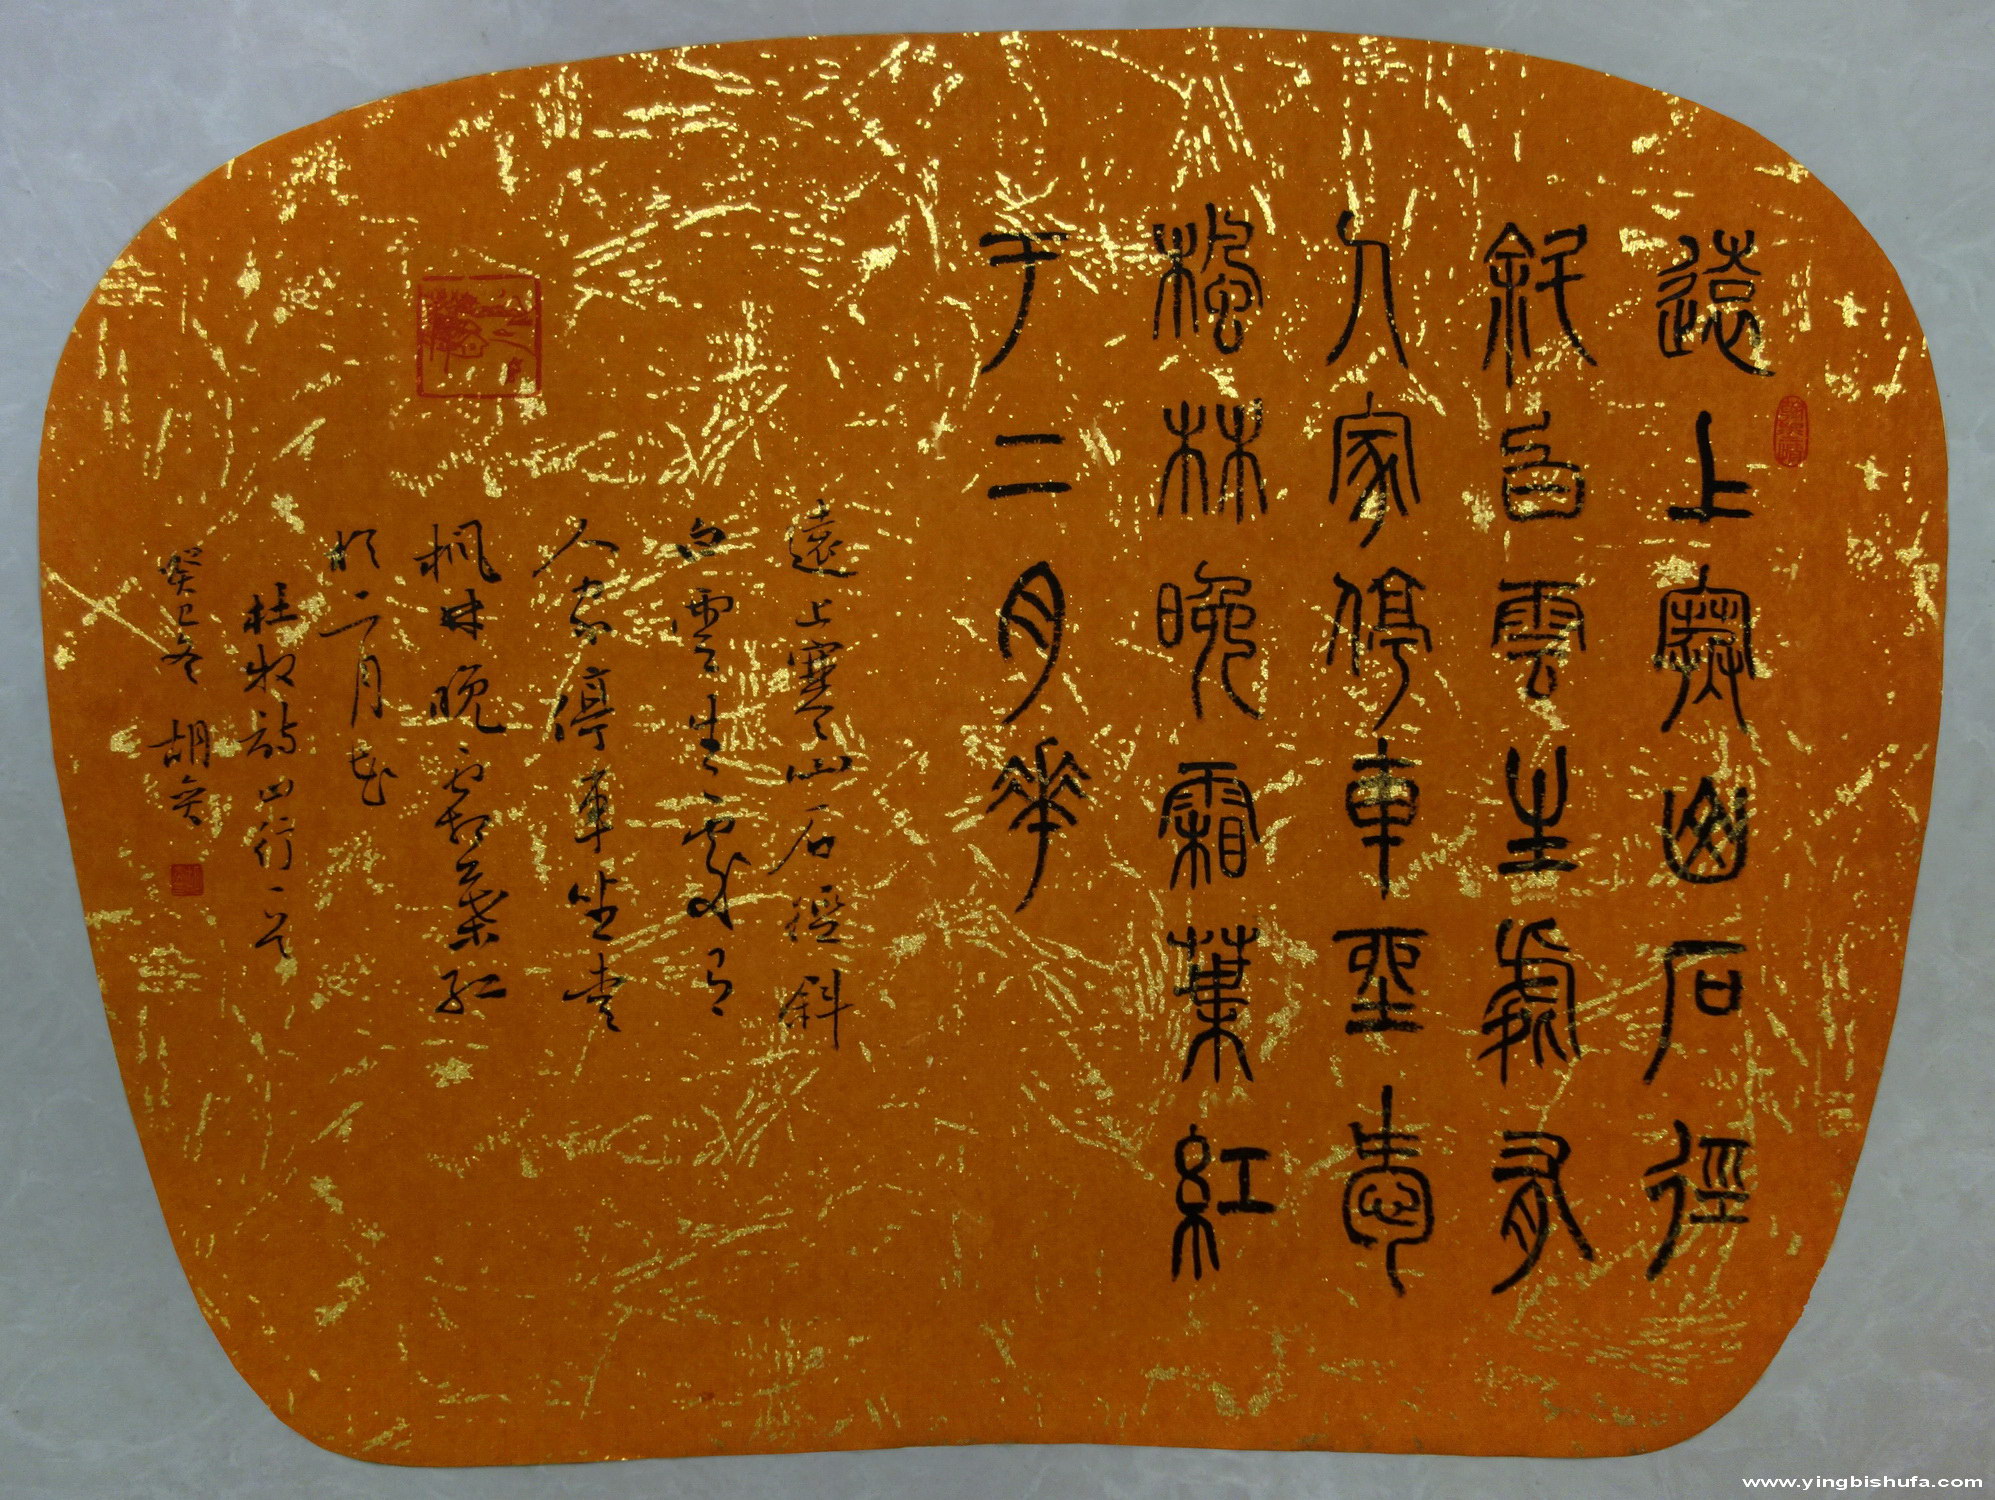 遠上寒山石徑
斜白雲生處有
人家停車坐愛
楓林晚霜葉紅
于二月華
遠上寒山石徑斜
白雲生處有
人家停車坐愛
楓林晚霜葉紅
於二月花
杜牧詩山行一首
癸巳冬 胡
www.yingbishufa.com